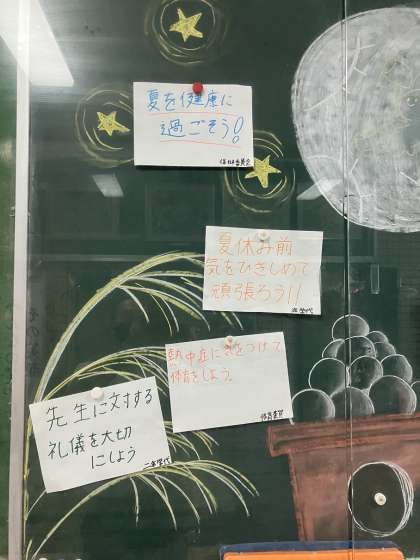 夏を健康に
過ごそう!
保体委員会
夏休み前
気をひきしめて
頑張ろう!!
熱中症に気をつけて
体育をしよう。
体育委員
先生に対する
礼儀を大切
にしよう
二年学代